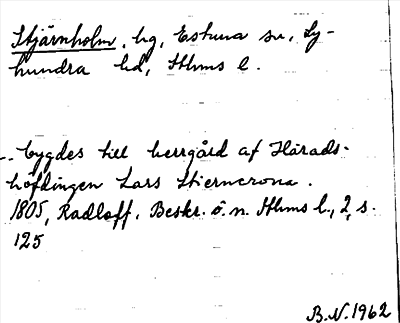 Stjärnholm, hg, Estuna sn, Ly-
hundra hd, Sthms l.
.. bygdes till herrgård af Härads-
höfdingen Lars Stiernerona.
1805, Radloff, Beskr. ö. n. Sthms l., 2, s.
125
B.N. 1962